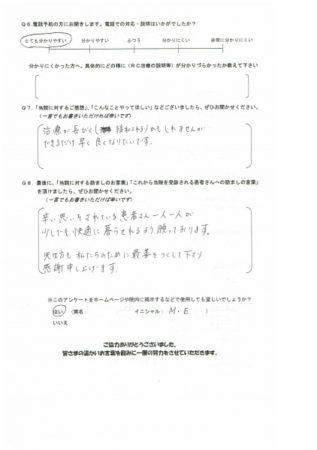 Q6.電話予約の方にお聞きします。電話での対応・説明はいかがでしたか?
とても分かりやすい 分かりやすい ふつう 分かりにくい 非常に分かりにくい
分かりにくかった方へ、具体的にどの様に(RC治療の説明等)が分かりづらかったか教えて下さい
Q7.「当院に対するご意見」、「こんなことやってほしい」などございましたら、ぜひお聞かせください。
(一言でもお書きいただければ幸いです)
治療が長びく かもしれませんが
できるだけ早く良くなりたいです。
Q8.最後に、「当院に対する励ましのお言葉」「これから当院を受診される患者さんへの励ましの言葉」
を頂けましたら、ぜひお聞かせください。
(一言でもお書きいただければ幸いです)
辛い思いをされている患者さん一人一人が
少しでも快適に暮らせれるよう願っております。
先生方も私たちのために最善をつくして下さり
感謝申し上げます。
※このアンケートをホームページや院内に掲示するなどで使用しても宜しいでしょうか?
はい (匿名 イニシャル: M・E )
いいえ
ご協力ありがとうございました。
皆さまの温かいお言葉を励みに一層の努力をさせていただきます。